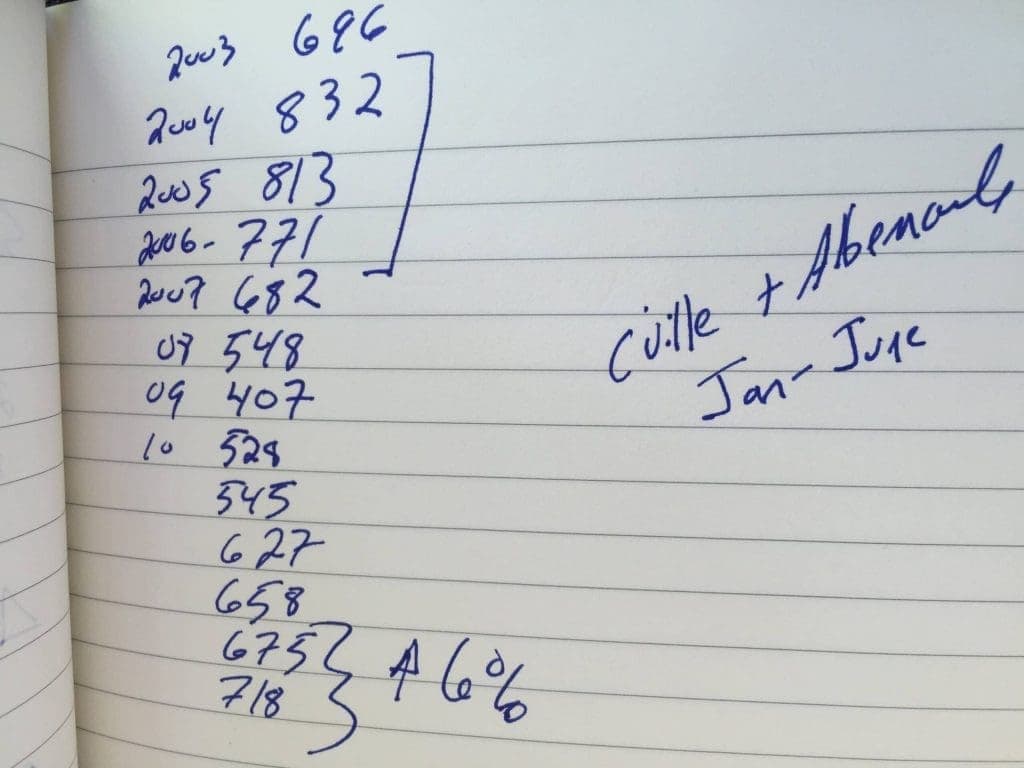 2003 696
2004 832
2005 813
2006- 771
2007 682
08 548
09 407
10 528
545
627
658
675
718
6%
Cville + Albemarle
Jan - June